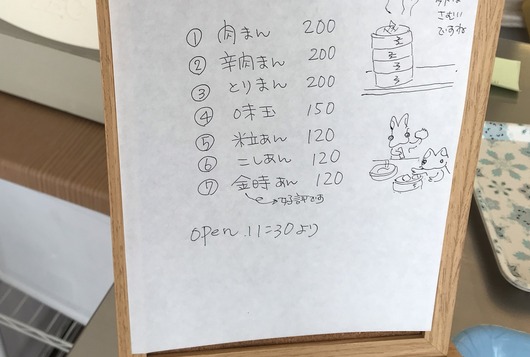 さむい
ですね
① 肉まん 200
② 辛肉まん 200
③ とりまん 200
④ 味玉 150
⑤ 粒あん 120
⑥ こしあん 120
⑦ 金時あん 120
好評です
open 11:30より